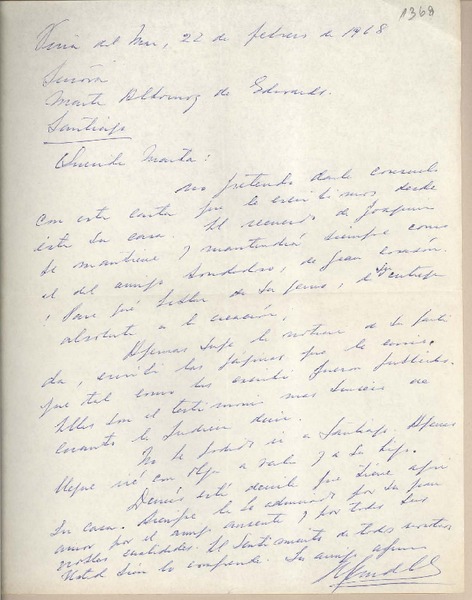 1368
Viña del Mar, 22 de febrero de 1968
Señora
Marta Albornoz de Edwards.
Santiago
Querida Marta:
No pretendo darle consuelo
con esta carta que le escribimos desde
ésta su casa. El recuerdo de Joaquín
se mantiene y mantendrá siempre como
el del amigo bondadoso, de gran corazón.
¡Para qué hablar de su genio, de su entrega
absoluta a la creación!
Apenas supe la noticia de su parti
da, escribí las páginas que le envío.
que tal como las escribí fueron publicadas.
Ellas son el testimonio más sincero de
cuanto le pudiera decir.
No he podido ir a Santiago. Apenas
llegue iré con Olga a verla y a su hija.
Demás está decirle que tiene aquí
su casa. Siempre la he admirado por su gran
amor por el amigo ausente y por todas sus
nobles cualidades. El sentimiento de todos nosotros
Usted bien lo comprende. Su amigo afmo.